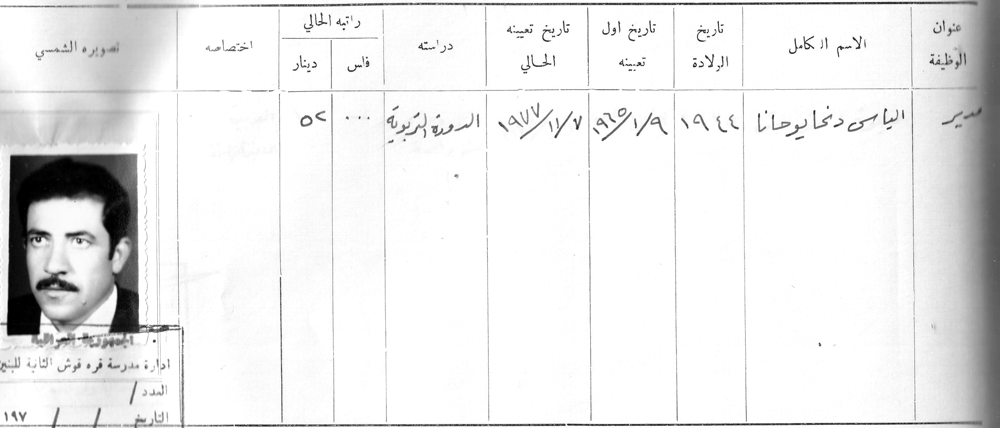 عنوان الوظيفة
الاسم الكامل
تاريخ الولادة
تاريخ اول تعيينه
تاريخ تعيينه الحالي
دراسته
راتبه الحالي
فلس
دينار
اختصاصه
تصويره الشمسي
مدير
الياس دنخا يوحانا
١٩٤٤
١٩٦٥/١/٩
١٩٧٧/١١/٧
الدورة التربوية
٠٠٠
٥٢
الجمهورية العراقية
ادارة مدرسة قره قوش الثانية للبنين
العدد /
التاريخ / / ١٩٧